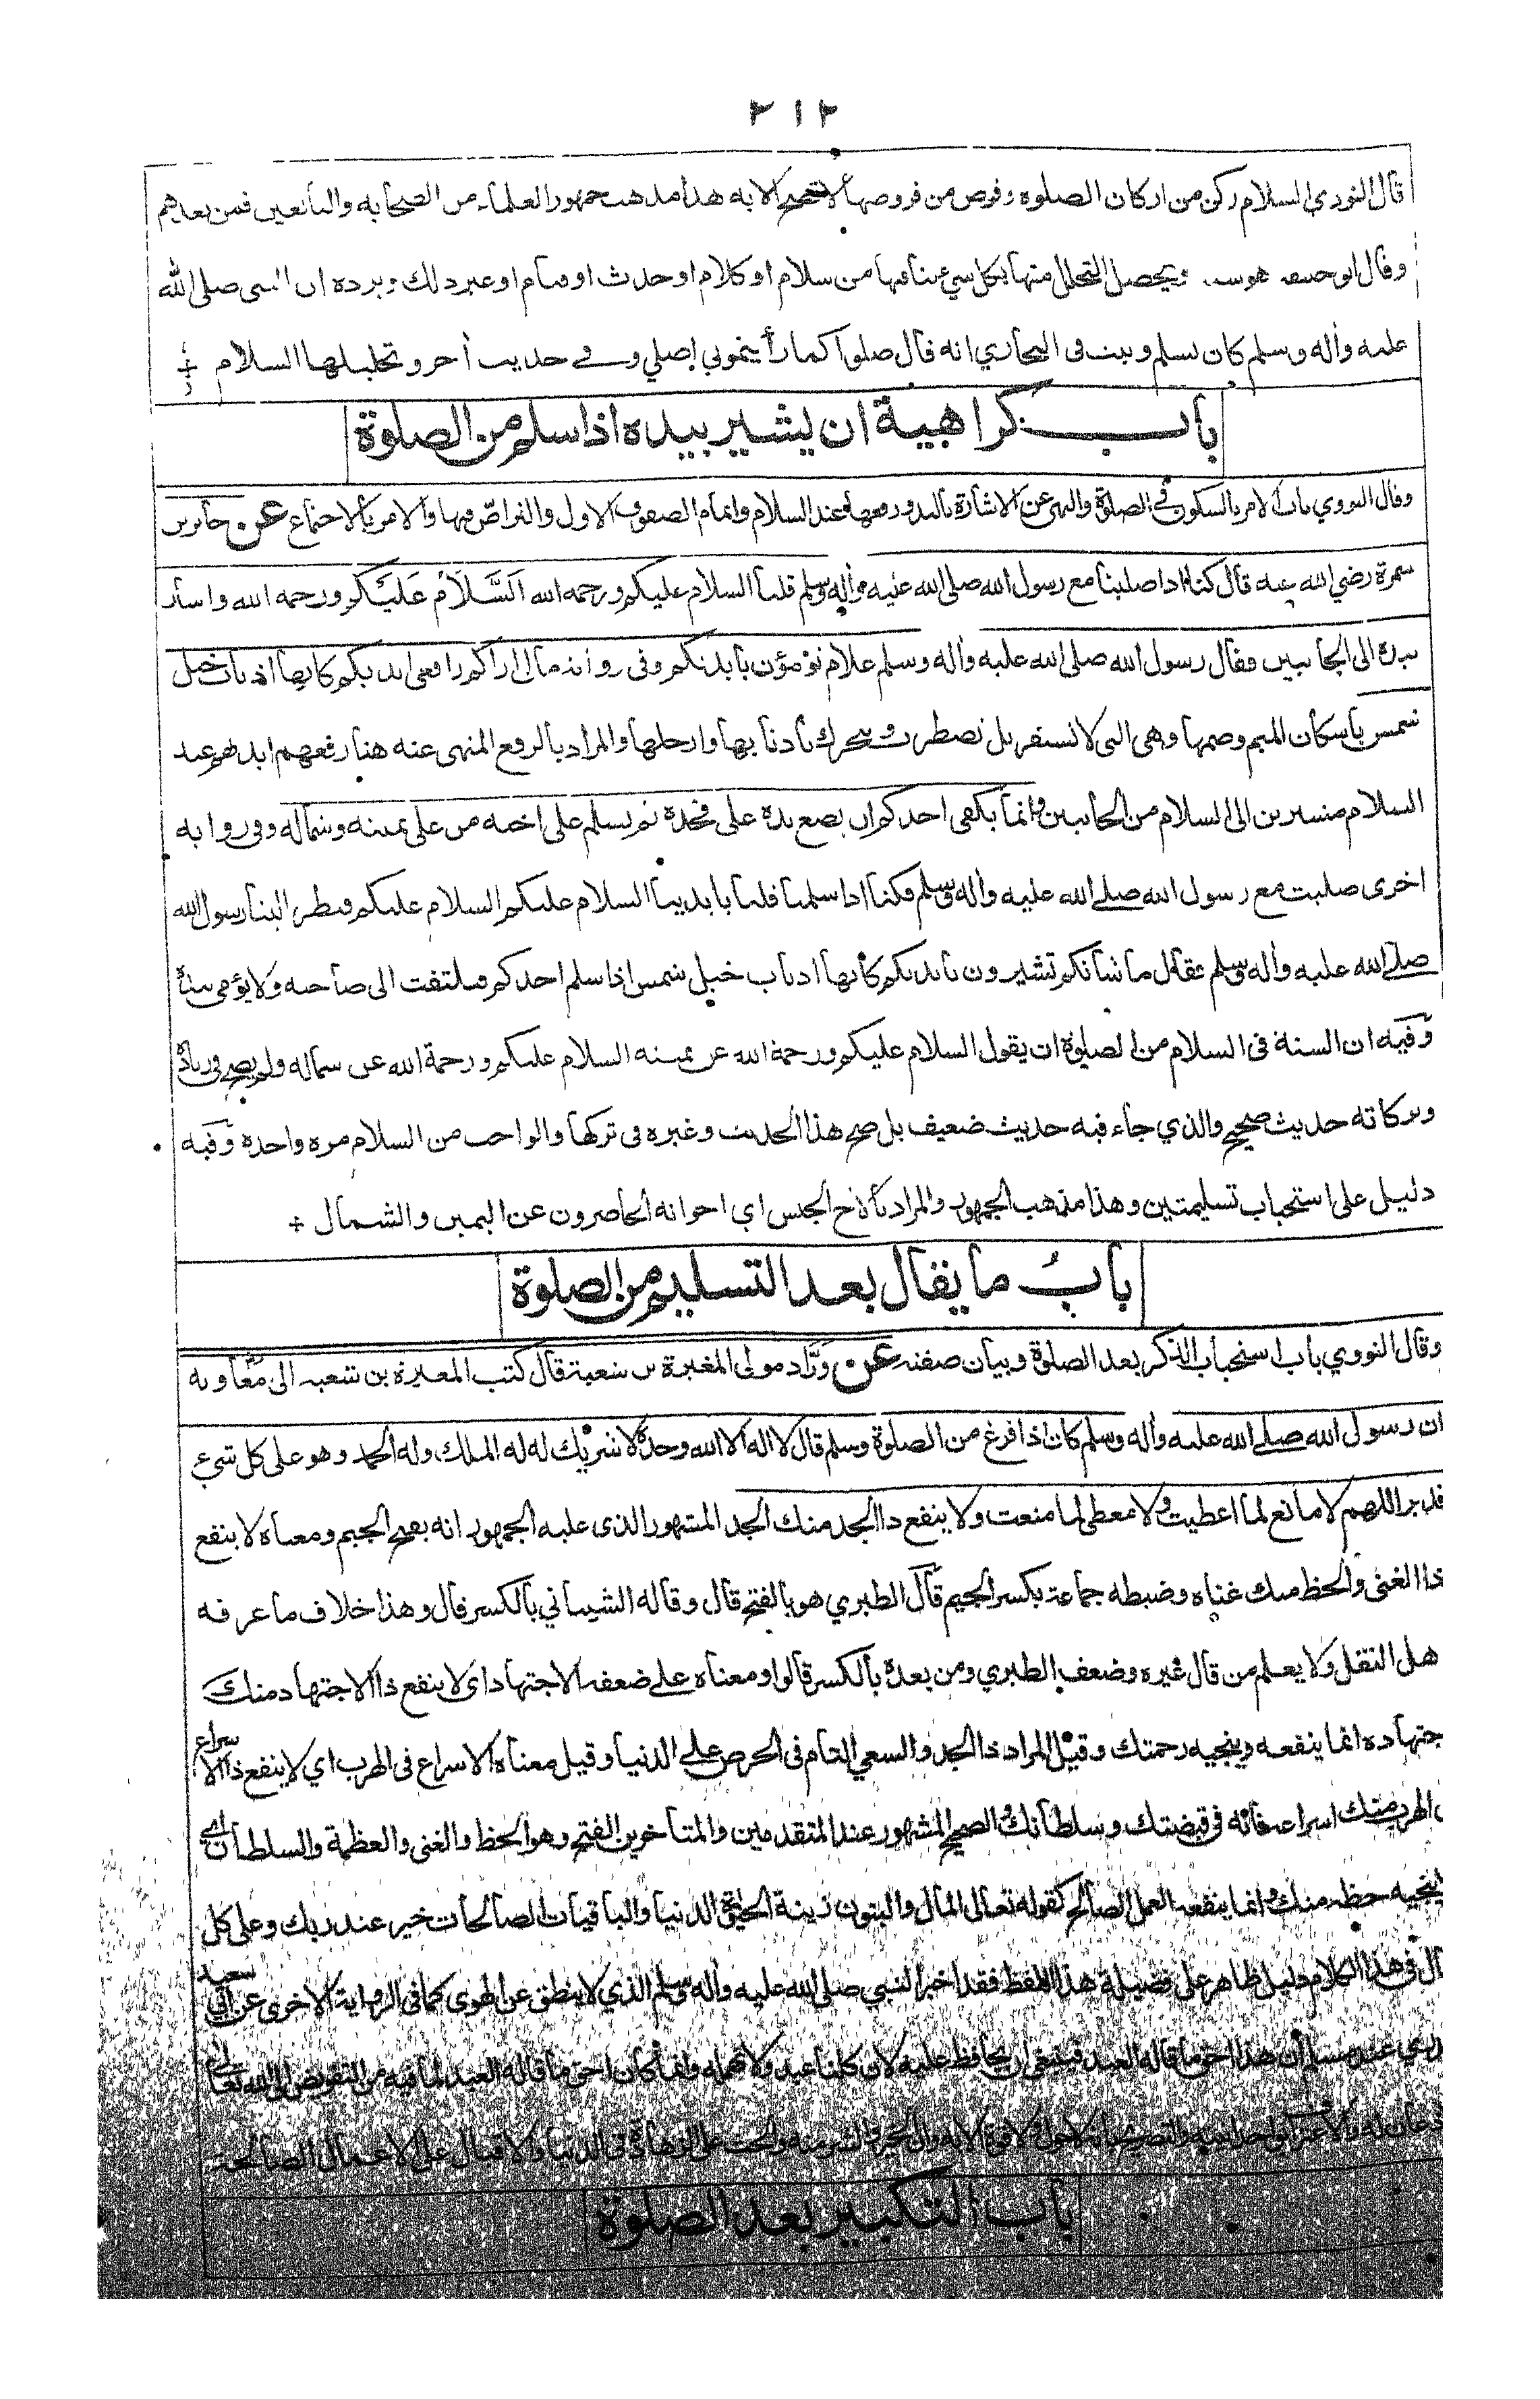 ٢١٢
قال النووي السلام ركن من اركان الصلوة وفرض من فروضها لا تصح الا به هذا مذهب جمهور العلماء من الصحابة والتابعين فمن بعدهم
وقال ابو حنيفة هو سنة ويحصل التحلل منها بكل شيء ينافيها من سلام او كلام او حدث او قيام او غير ذلك ويرده ان النبي صلى الله
عليه واله وسلم كان يسلم وثبت في البخاري انه قال صلوا كما رأيتموني اصلي وفي حديث أخر وتحليلها السلام
باب كراهية ان يشير بيده اذا سلم من الصلوة
وقال النووي باب الامر بالسكون في الصلوة والنهي عن الاشارة باليد ورفعها عند السلام واتمام الصفوف الاول والتراص فيها والامر بالاجتماع عن جابر بن
سمرة رضي الله عنه قال كنا اذا صلينا مع رسول الله صلى الله عليه واله وسلم قلنا السلام عليكم ورحمة الله اَلسَّلَامُ عَلَيْكم ورحمة الله واشار
بيده الى الجانبين فقال رسول الله صلى الله عليه واله وسلم علام تؤمؤن بايديكم وفى رواية مالى اراكم رافعى ايديكم كانها اذناب خيل
شمس باسكان الميم وضمها وهى التى لا تستقر بل تضطرب وتتحرك باذنابها وارجلها والمراد بالرفع المنهى عنه هنا رفعهم ايديهم عند
السلام مشيرين الى السلام من الجانبين وانما يكفى احدكم ان يضع يده على فخذه ثم يسلم على اخيه من على يمينه وشماله وفى رواية
اخرى صليت مع رسول الله صلے الله عليه واله وسلم فكنا اذا سلمنا قلنا بايدينا السلام عليكم السلام عليكم فنظر الينا رسول الله
صلے الله عليه واله وسلم فقال ما شأنكم تشيرون بايديكم كأنها اذناب خيل شمس اذا سلم احدكم فليلتفت الى صاحبه ولا يؤمى بيده
وفيه ان السنة فى السلام من الصلوة ان يقول السلام عليكم ورحمة الله عن يمينه السلام عليكم ورحمة الله عن شماله ولم يصح فى زيادة
وبركاته حديث صحيح والذي جاء فيه حديث ضعيف بل صح هذا الحديث وغيره فى تركها والواجب من السلام مره واحدة وفيه
دليل على استحباب تسليمتين وهذا مذهب الجمهور والمراد بالاخ الجنس اي اخوانه الحاضرون عن اليمين والشمال
بابُ ما يقال بعد التسليم من الصلوة
وقال النووي باب استحباب الذكر بعد الصلوة وبيان صفته عن وَرَّاد مولى المغيرة بن شعبة قال كتب المغيرة بن شعبه الى معاوية
ان رسول الله صلے الله عليه واله وسلم كان اذا فرغ من الصلوة وسلم قال لا اله الا الله وحده لا شريك له له الملك وله الحمد وهو على كل شيء
قدير اللهم لا مانع لما اعطيت ولا معطى لما منعت ولا ينفع ذا الجد منك الجد المشهور الذى عليه الجمهور انه بفتح الجيم ومعناه لا ينفع
ذا الغنى والحظ منك غناه وضبطه جماعة بكسر الجيم قال الطبري هو بالفتح قال وقاله الشيباني بالكسر قال وهذا خلاف ما عرفه
هل النقل ولا يعلم من قال غيره وضعف الطبري ومن بعده بالكسر قالوا ومعناه على ضعفه الاجتهاد اى لا ينفع ذا الاجتهاد منك
جتهاده انما ينفعه وينجيه رحمتك وقيل المراد ذا الجد والسعي التام فى الحرص على الدنيا وقيل معناه الاسراع فى الهرب اي لا ينفع ذا الاسراع
الهرب منك اسراعه فانه فى قبضتك وسلطانك والصحيح المشهور عند المتقدمين والمتأخرين الفتح وهو الحظ والغنى والعظمة والسلطان اى
ينجيه حظه منك وانما ينفعه العمل الصالح كقوله تعالى المال والبنون زينة الحيوة الدنيا والباقيات الصالحات خير عند ربك وعلى كل
ال فى هذا الكلام دليل ظاهر على فضيلة هذا اللفظ فقد اخبر النبي صلى الله عليه واله وسلم الذي لا ينطق عن الهوى كما فى الرواية الاخرى عن ابي سعيد
دري عند مسلم ان هذا احق ما قاله العبد فينبغى ان يحافظ عليه لان كلنا عبد ولا نهمله وانما كان احق ما قاله العبد لما فيه من التفويض الى الله تعالى
ذعان له والاعتراف بوحدانيته والتصريح بانه لا حول ولا قوة الا به وان الخير والشر منه والحث على الزهادة فى الدنيا والاقبال على الاعمال الصالحة
باب التكبير بعد الصلوة